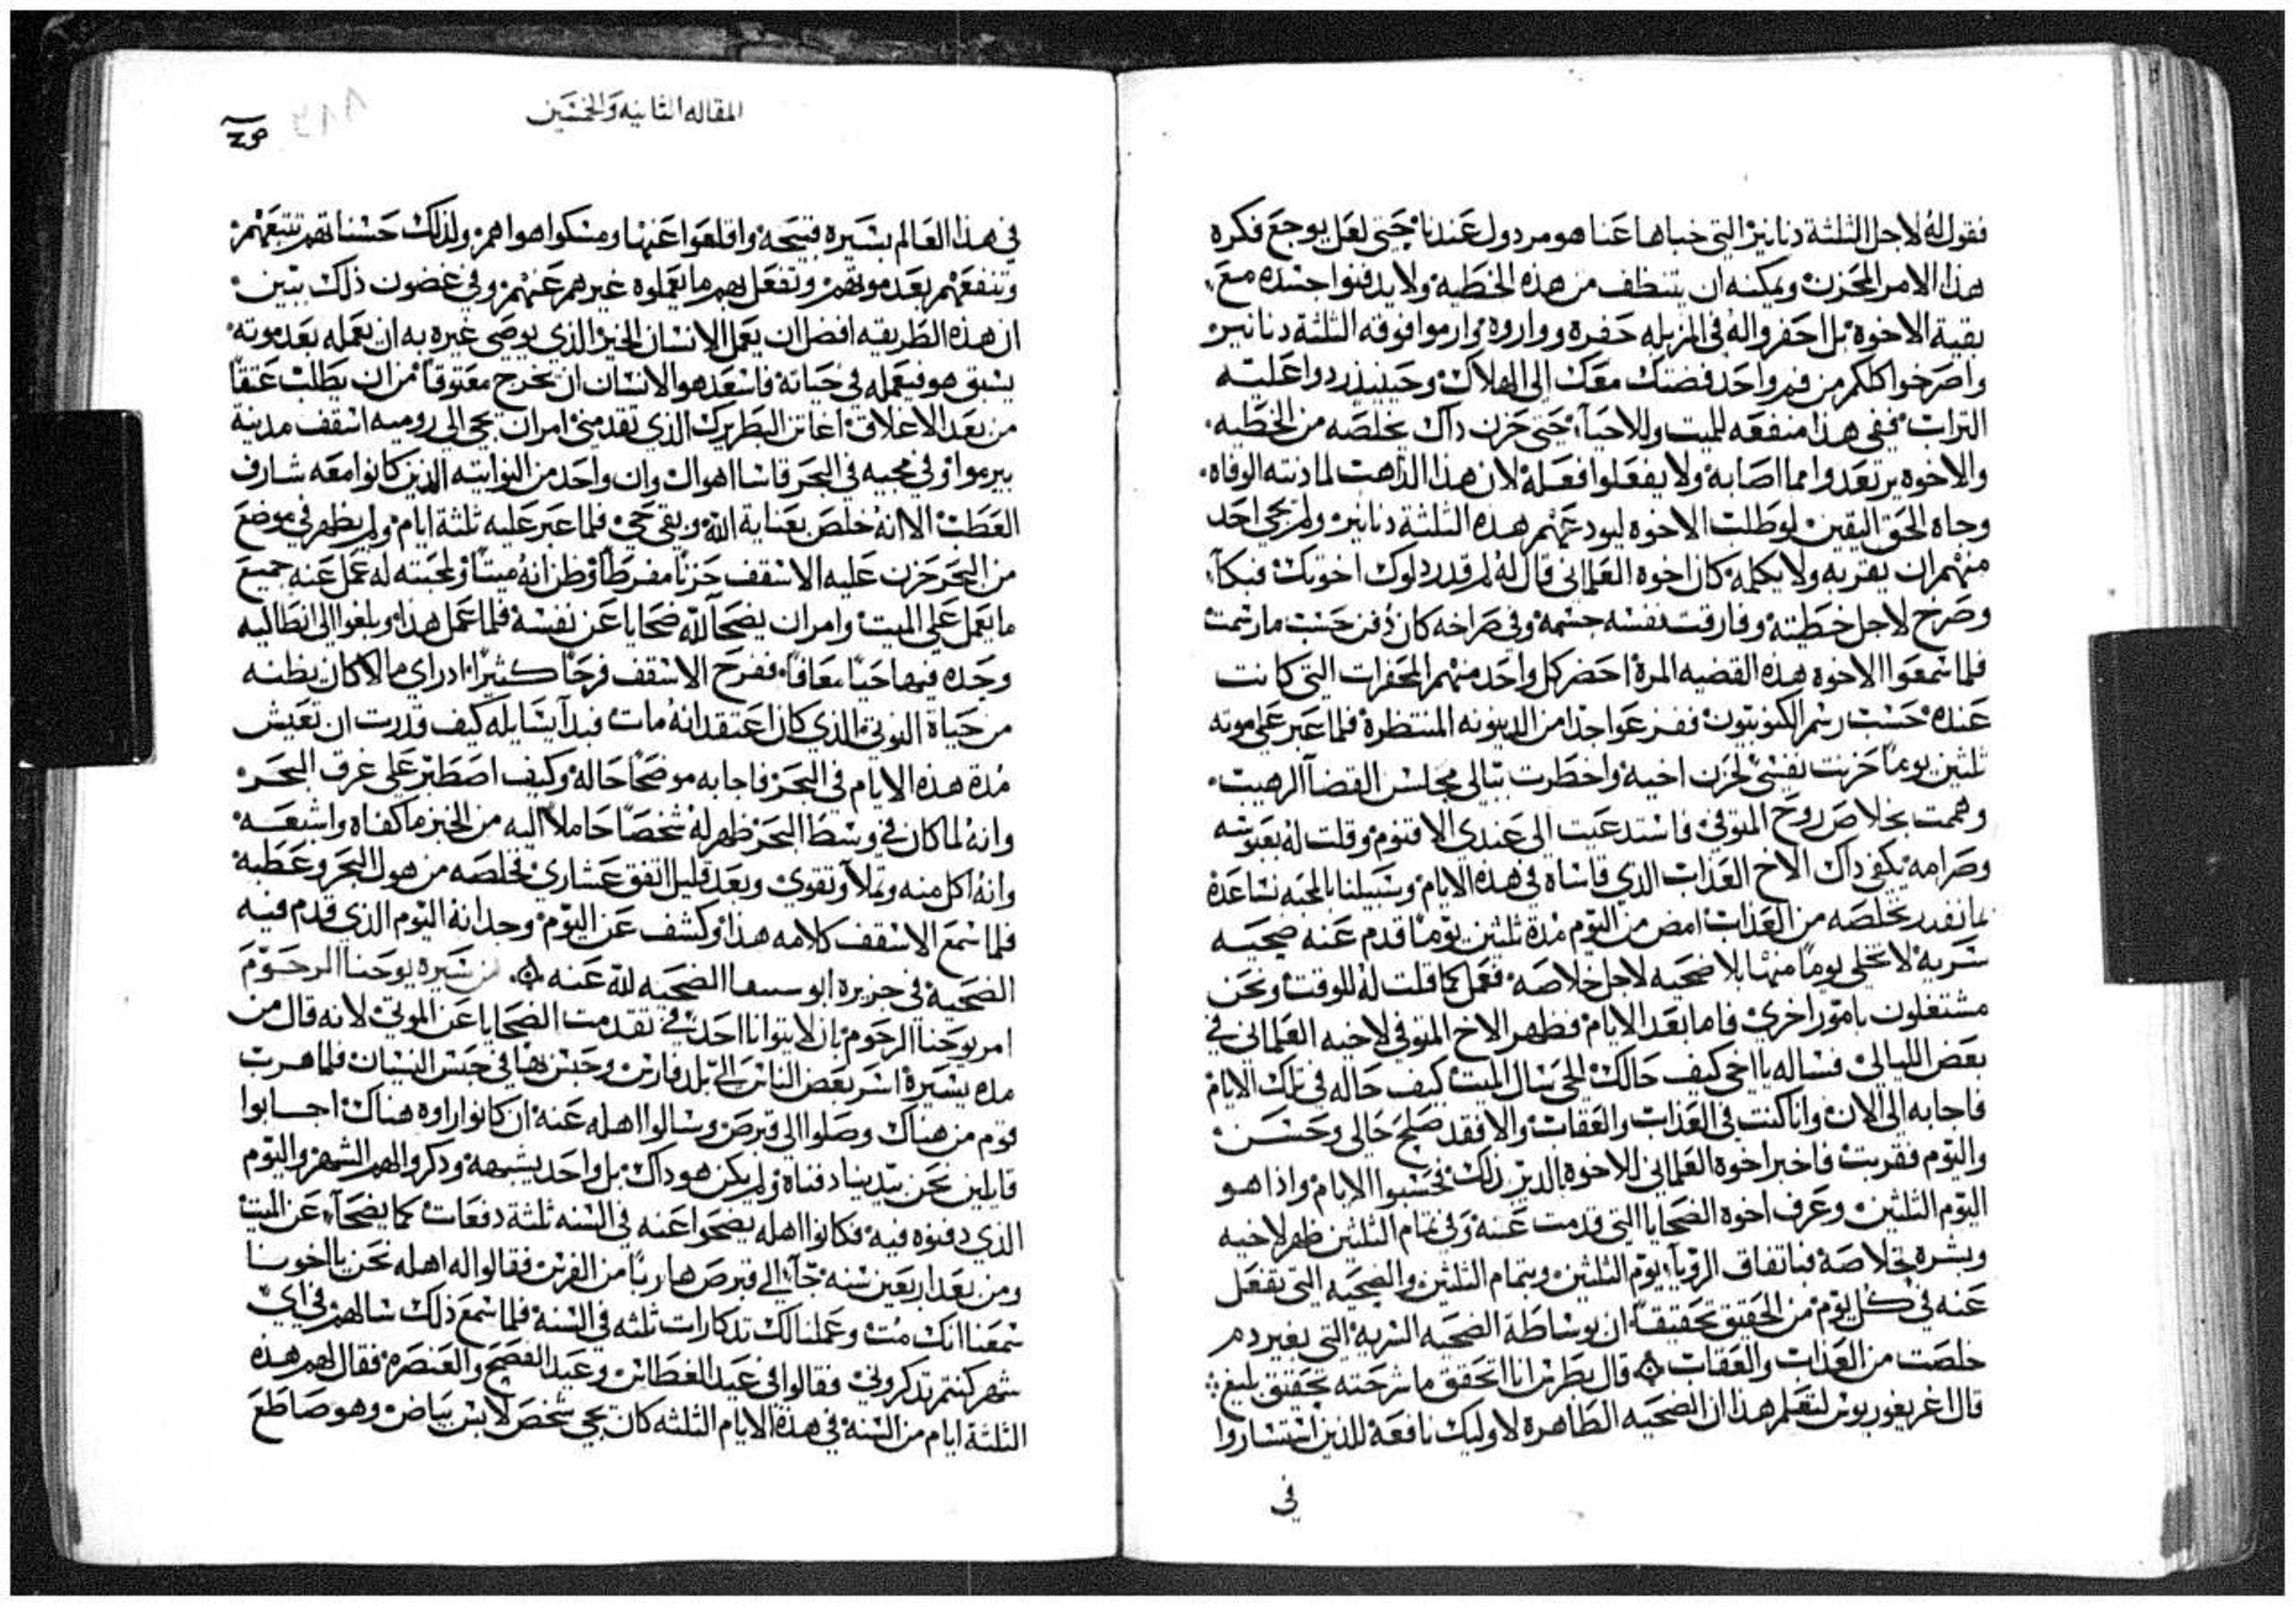 فقول له لاجل الثلثة دنانير التي خباها عنا هو مردول عندنا حتى لعل يوجع فكره
هذا الامر المحزن ويمكنه ان يتنظف من هذه الخطيه ولا يدفنوا جسده مع
بقية الاخوة بل احفروا له في المزبله حفره وواروه وارموا فوقه الثلثة دنانير
واصرخوا كلكم من فم واحد فضتك معك الى الهلاك وحينيذ ردوا عليه
التراب ففي هذا منفعه للميت وللاحيآء حتى حزن داك يخلصه من الخطيه
والاخوه يرتعدوا مما اصابه ولا يفعلوا فعله لان هذا الراهب لما دنته الوفاه
وجاه الحق اليقين لو طلب الاخوه ليودعهم هذه الثلثة دنانير ولم يجي احد
منهم ان يقربه ولا يكلمه كان اخوه العلماني قال له لم قدردلوك اخوتك فبكآ
وصرخ لاجل خطيته وفارقت نفسه جسمه وفي صراخه كان دفن حسب ما رسمت
فلما سمعوا الاخوه هذه القضيه المرة احضر كل واحد منهم المحقرات التي كانت
عنده حسب رسم الكنوبيون ففزعوا جدا من الدينونه المنتظرة فلما عبر على موته
ثلثين يوما حزنت نفسي لحزن اخيه واخطرت ببالي مجلس القضآ الرهيب
وهممت بخلاص روح المتوفي فاستدعيت الى عندي الاقنوم وقلت له بعبوسه
وصرامه يكفي داك الاخ العذاب الذي قاساه في هذه الايام وسبيلنا بالمحبه نساعده
بما نقدر نخلصه من العذاب امض من اليوم مدة ثلثين يوما قدم عنه ضحيه
سريه لا تخلي يوما منها بلا ضحيه لاجل خلاصه ففعل كما قلت له للوقت ونحن
مشتغلون بامور اخرى فاما بعد الايام فظهر الاخ المتوفي لاخيه العلماني في
بعض الليالي فساله يا اخي كيف حالك الحي يسال الميت كيف حاله في تلك الايام
فاجابه الى الان وانا كنت في العذاب والعقاب والا فقد صلح حالي وحسن
واليوم فقربت فاخبر اخوة العلماني للاخوة الدير ذلك فحسبوا الايام واذا هو
اليوم الثلثين وعرف اخوه الضحايا التي قدمت عنه وفي تمام الثلثين ظهر لاخيه
وبشره بخلاصه فباتفاق الرويآ يوم الثلثين وبتمام الثلثين والضحيه التي تفعل
عنه في كل يوم من الحقيق تحقيقا ان بوساطة الضحيه السريه التي بغير دم
خلصت من العذاب والعقاب ۞ قال بطرس انا اتحقق ما شرحته تحقيق بليغ
قال اغريغوريوس لتعلم هذا ان الضحيه الطاهرة لاوليك نافعة للذين استساروا
في
المقاله الثانيه والخمسين
في هذا العالم بسيره قبيحه واقلعوا عنها ومسكوا هواهم ولذلك حسناتهم تتبعهم
وتنفعهم بعد موتهم وتفعل بهم ما يعملوه غيرهم عنهم وفي غضون ذلك بتين
ان هذه الطريقه افضل ان يعمل الانسان الخير الذي يوصي غيره به ان يعمله بعد موته
يسبق هو فيعمله في حياته فاسعد هو الانسان ان يخرج معتوقا من ان يطلب عتقا
من بعد الاغلاق اغاتن البطريرك الذي تقدمني امر ان يجي الى روميه اسقف مدينة
بيرموا وفي مجيه في البحر قاسا اهوال وان واحد من النواتيه الذين كانوا معه شارف
العطب الا انه خلص بعناية الله وبقي حي فلما عبر عليه ثلثة ايام ولم يظهر في موضع
من البحر حزن عليه الاسقف حزنا مفرطا وظن انه ميتا ولمحبته له عمل عنه جميع
ما يعمل على الميت وامر ان يضحآ لله ضحايا عن نفسه فلما عمل هذا وبلغوا الى انطاليه
وجده فيها حيا معافا ففرح الاسقف فرحا كثيرا ادراى مالا كان يظنه
من حياة النوتي الذي كان اعتقد انه مات فبدآ يسايله كيف قدرت ان تعيش
مدة هذه الايام في البحر فاجابه موضحا حاله وكيف اصطبر على غرق البحر
وانه لما كان في وسط البحر ظهر له شخصا حاملا اليه من الخبز ما كفاه واشبعه
وانه اكل منه وتملآ وتقوى وبعد قليل اتفق عشاري فخلصه من هول البحر وعطبه
فلما سمع الاسقف كلامه هذا وكشف عن اليوم وجد انه اليوم الذي قدم فيه
الضحية في جزيرة الضحيه لله عنه ۞ من سيره يوحنا الرحوم
امر يوحنا الرحوم بان لا يتوانا احد في تقدمت الضحايا عن الموتى لانه قال من
مده يسيرة اسر بعض الناس الى بلد فارس وحبس بها في حبس النسيان فلما هرب
قوم من هناك وصلوا الى قبرص وسالوا اهله عنه ان كانوا راوه هناك اجابوا
قايلين نحن بيدينا دفناه ولم يكن هو داك بل واحد يشبهه وذكروا لهم الشهر واليوم
الذي دفنوه فيه فكانوا اهله يضحوا عنه في السنه ثلثة دفعات كما يضحآ عن الميت
ومن بعد اربعين سنه جآ الى قبرص هاربا من الفرس فقالوا له اهله نحن يا اخونا
سمعنا انك مت وعملنا لك تدكارات ثلثه في السنة فلما سمع ذلك سالهم في اي
شهر كنتم تدكروني فقالوا في عيد الغطاس وعيد الفصح والعنصره فقال لهم هذه
الثلثة ايام من السنه في هذه الايام الثلثه كان يجي شخص لابس بياض وهو صاطع